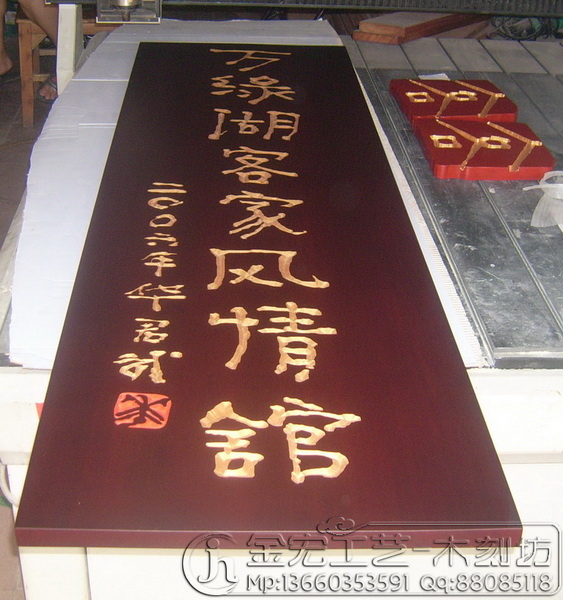 万绿湖客家风情舘
二〇〇六年华君武
金宏工艺-木刻坊
Mp:13660353591 qq:88085118